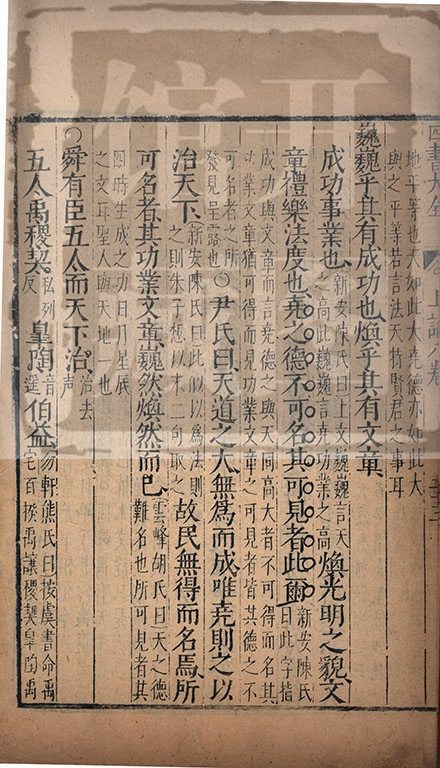 地平等也天如此大堯亦如此大
與之平等若言法天特賢君之事耳
巍巍乎其有成功也煥乎其有文章
成功事業也新安陳氏曰上文巍巍言天
之高此巍巍言堯功業之高煥光明之貌文
章禮樂法度也堯之德不可名其可見者此爾新安陳氏
曰此字指
成功與文章而言堯德之與天同高大者不可得而名其
功業文章猶可得而見功業文章之可見者皆其德之不
可名者之所
發見呈露也○尹氏曰天道之大無為而成唯堯則之以
治天下新安陳氏曰此似以為法則
之則朱子想以末二句取之故民無得而名焉所
可名者其功業文章巍然煥然而已雲峰胡氏曰天之德
難名也所可見者其
四時生成之功日月星辰
之文耳聖人與天地一也
○舜有臣五人而天下治治去
聲
五人禹稷契私列
反皋陶音
遙伯益勿軒熊氏曰按虞書命禹
宅百揆禹讓稷契皋陶禹